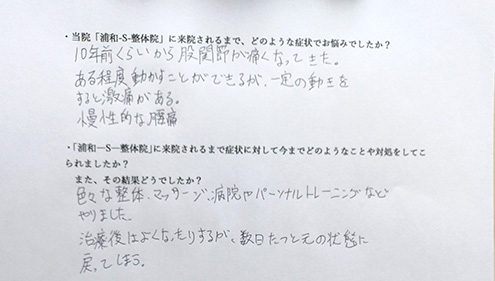 ・当院「浦和-S-整体院」に来院されるまで、どのような症状でお悩みでしたか？
10年前くらいから股関節が痛くなってきた。
ある程度動かすことができるが、一定の動きを
すると激痛がある。
慢性的な腰痛
・「浦和－S－整体院」に来院されるまで症状に対して今までどのようなことや対処をしてこ
られましたか？
また、その結果どうでしたか？
色々な整体、マッサージ、病院やパーソナルトレーニングなど
やりました。
治療後はよくなったりするが、数日たつと元の状態に
戻ってしまう。